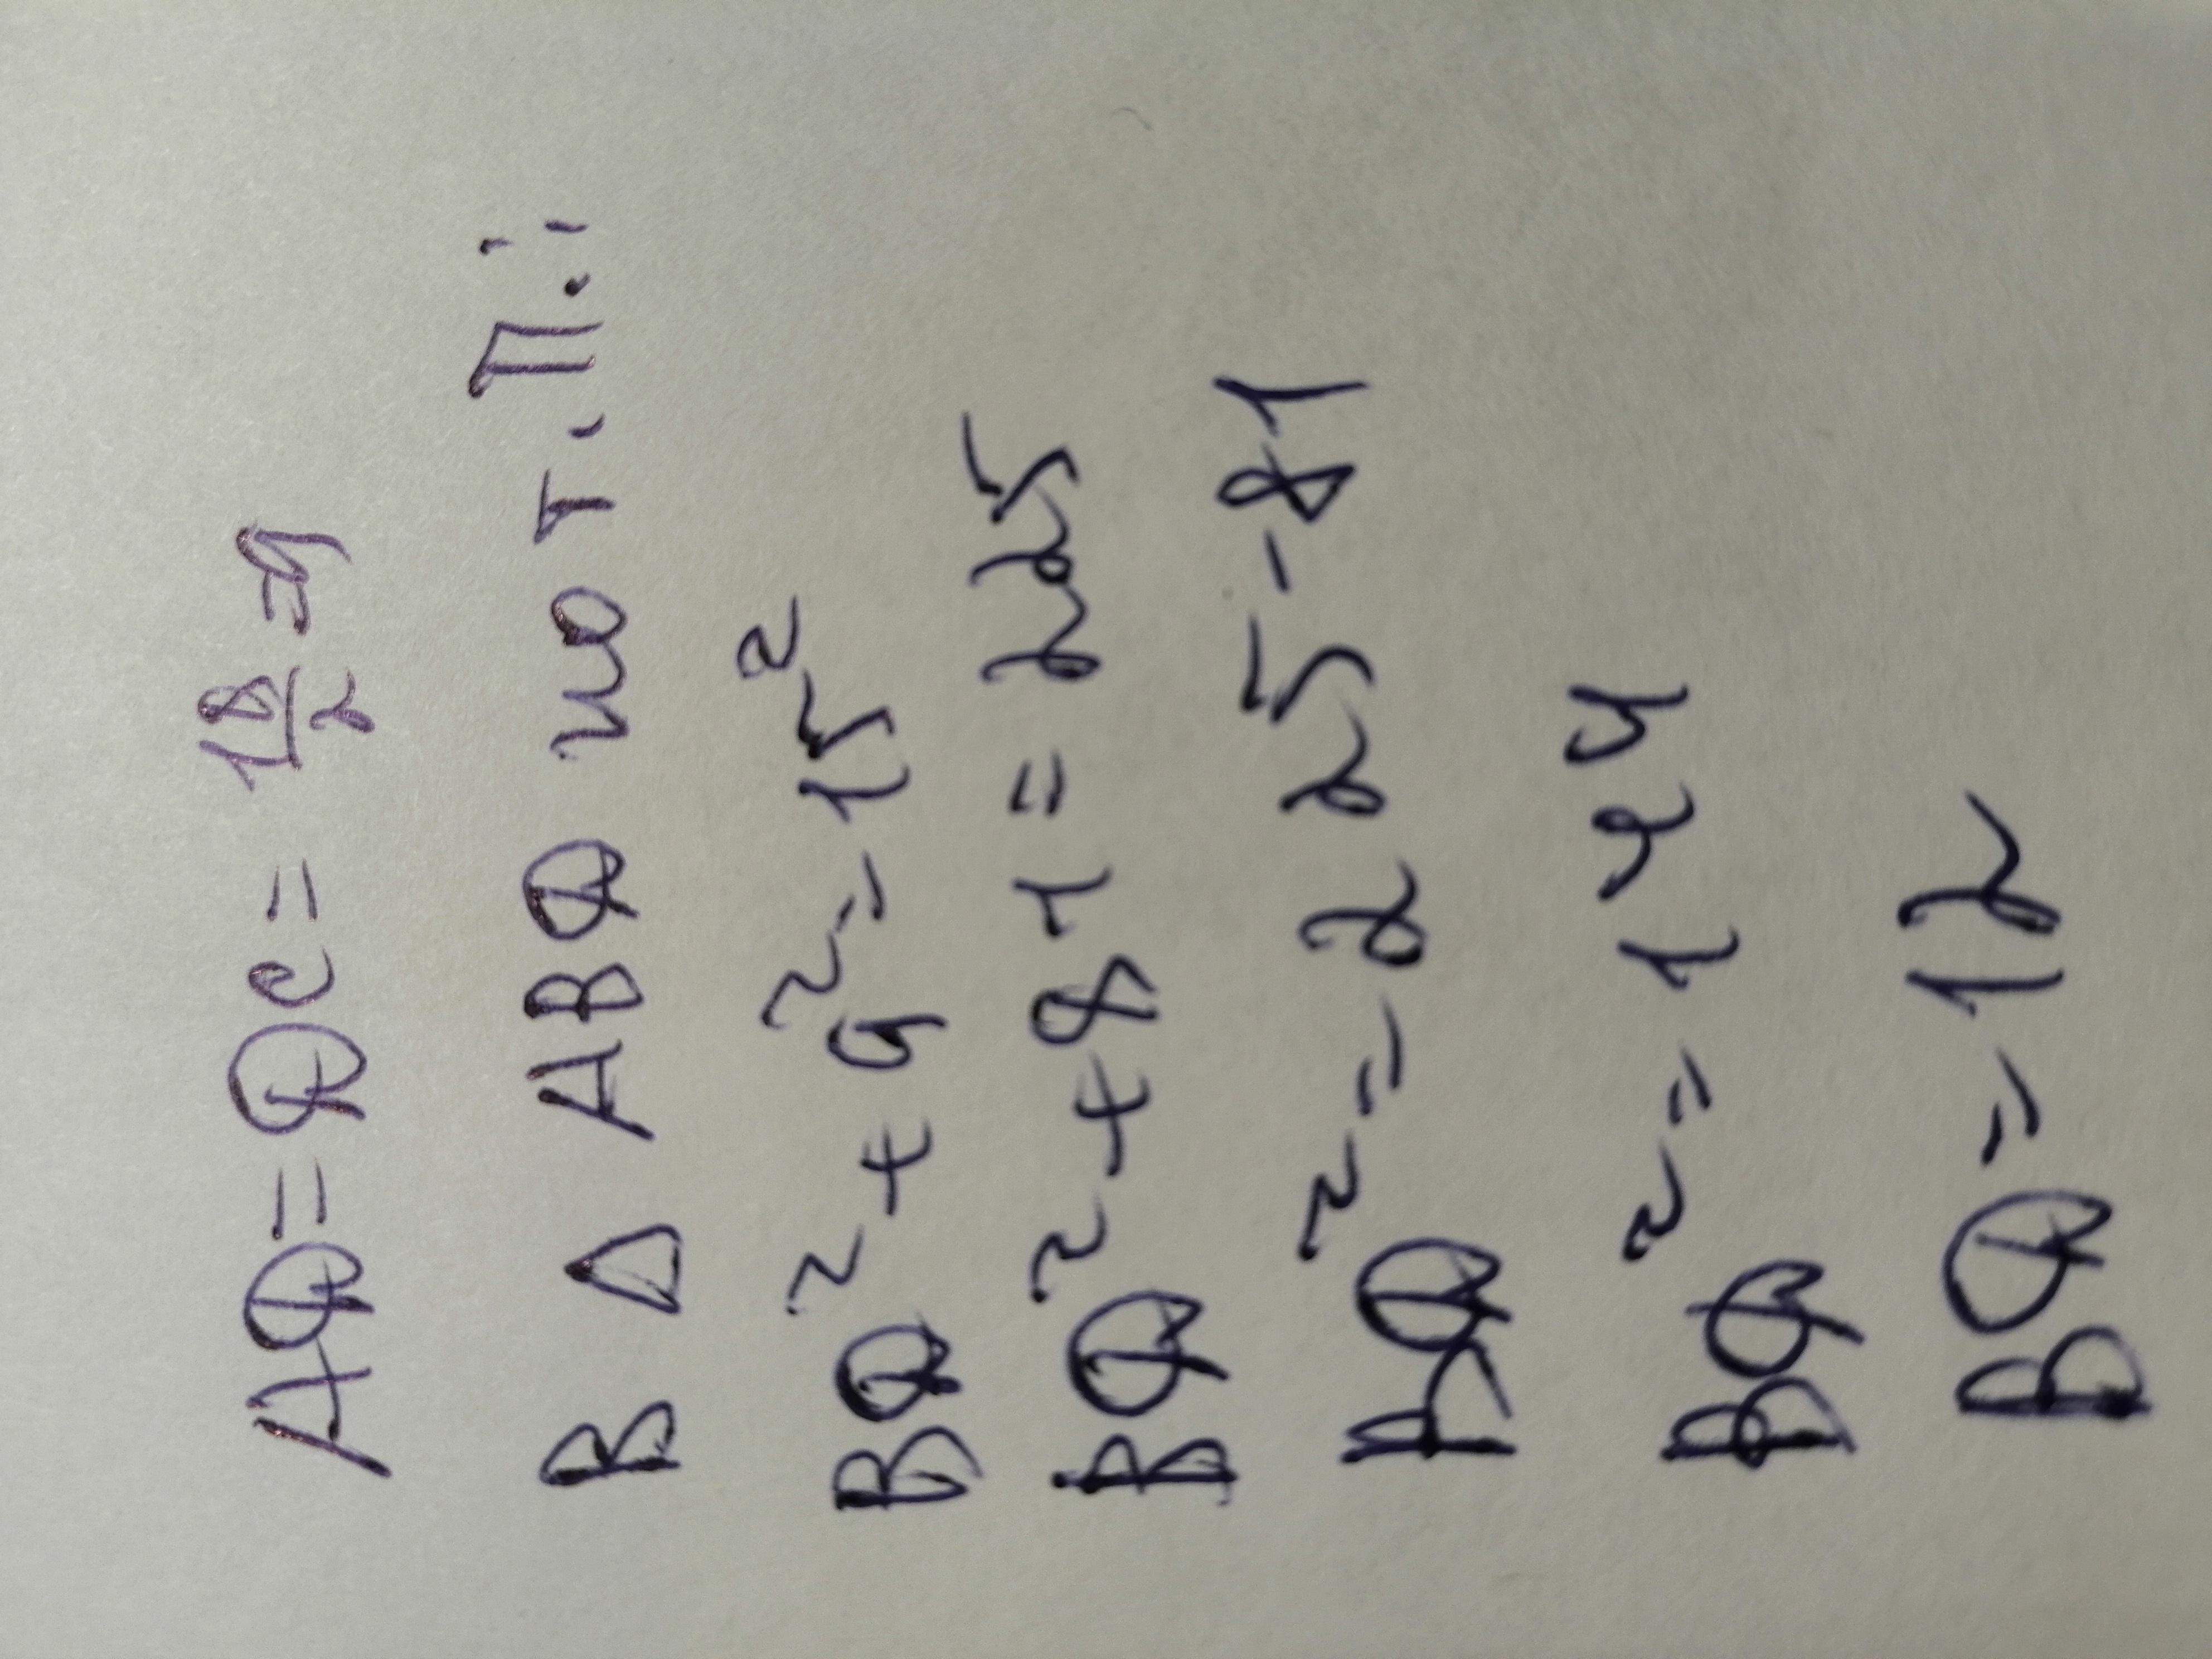 AQ = QC = 18/2 = 9
В Δ ABQ по т. П.:
BQ² + 9² = 15²
BQ² + 81 = 225
BQ² = 225 - 81
BQ² = 144
BQ = 12